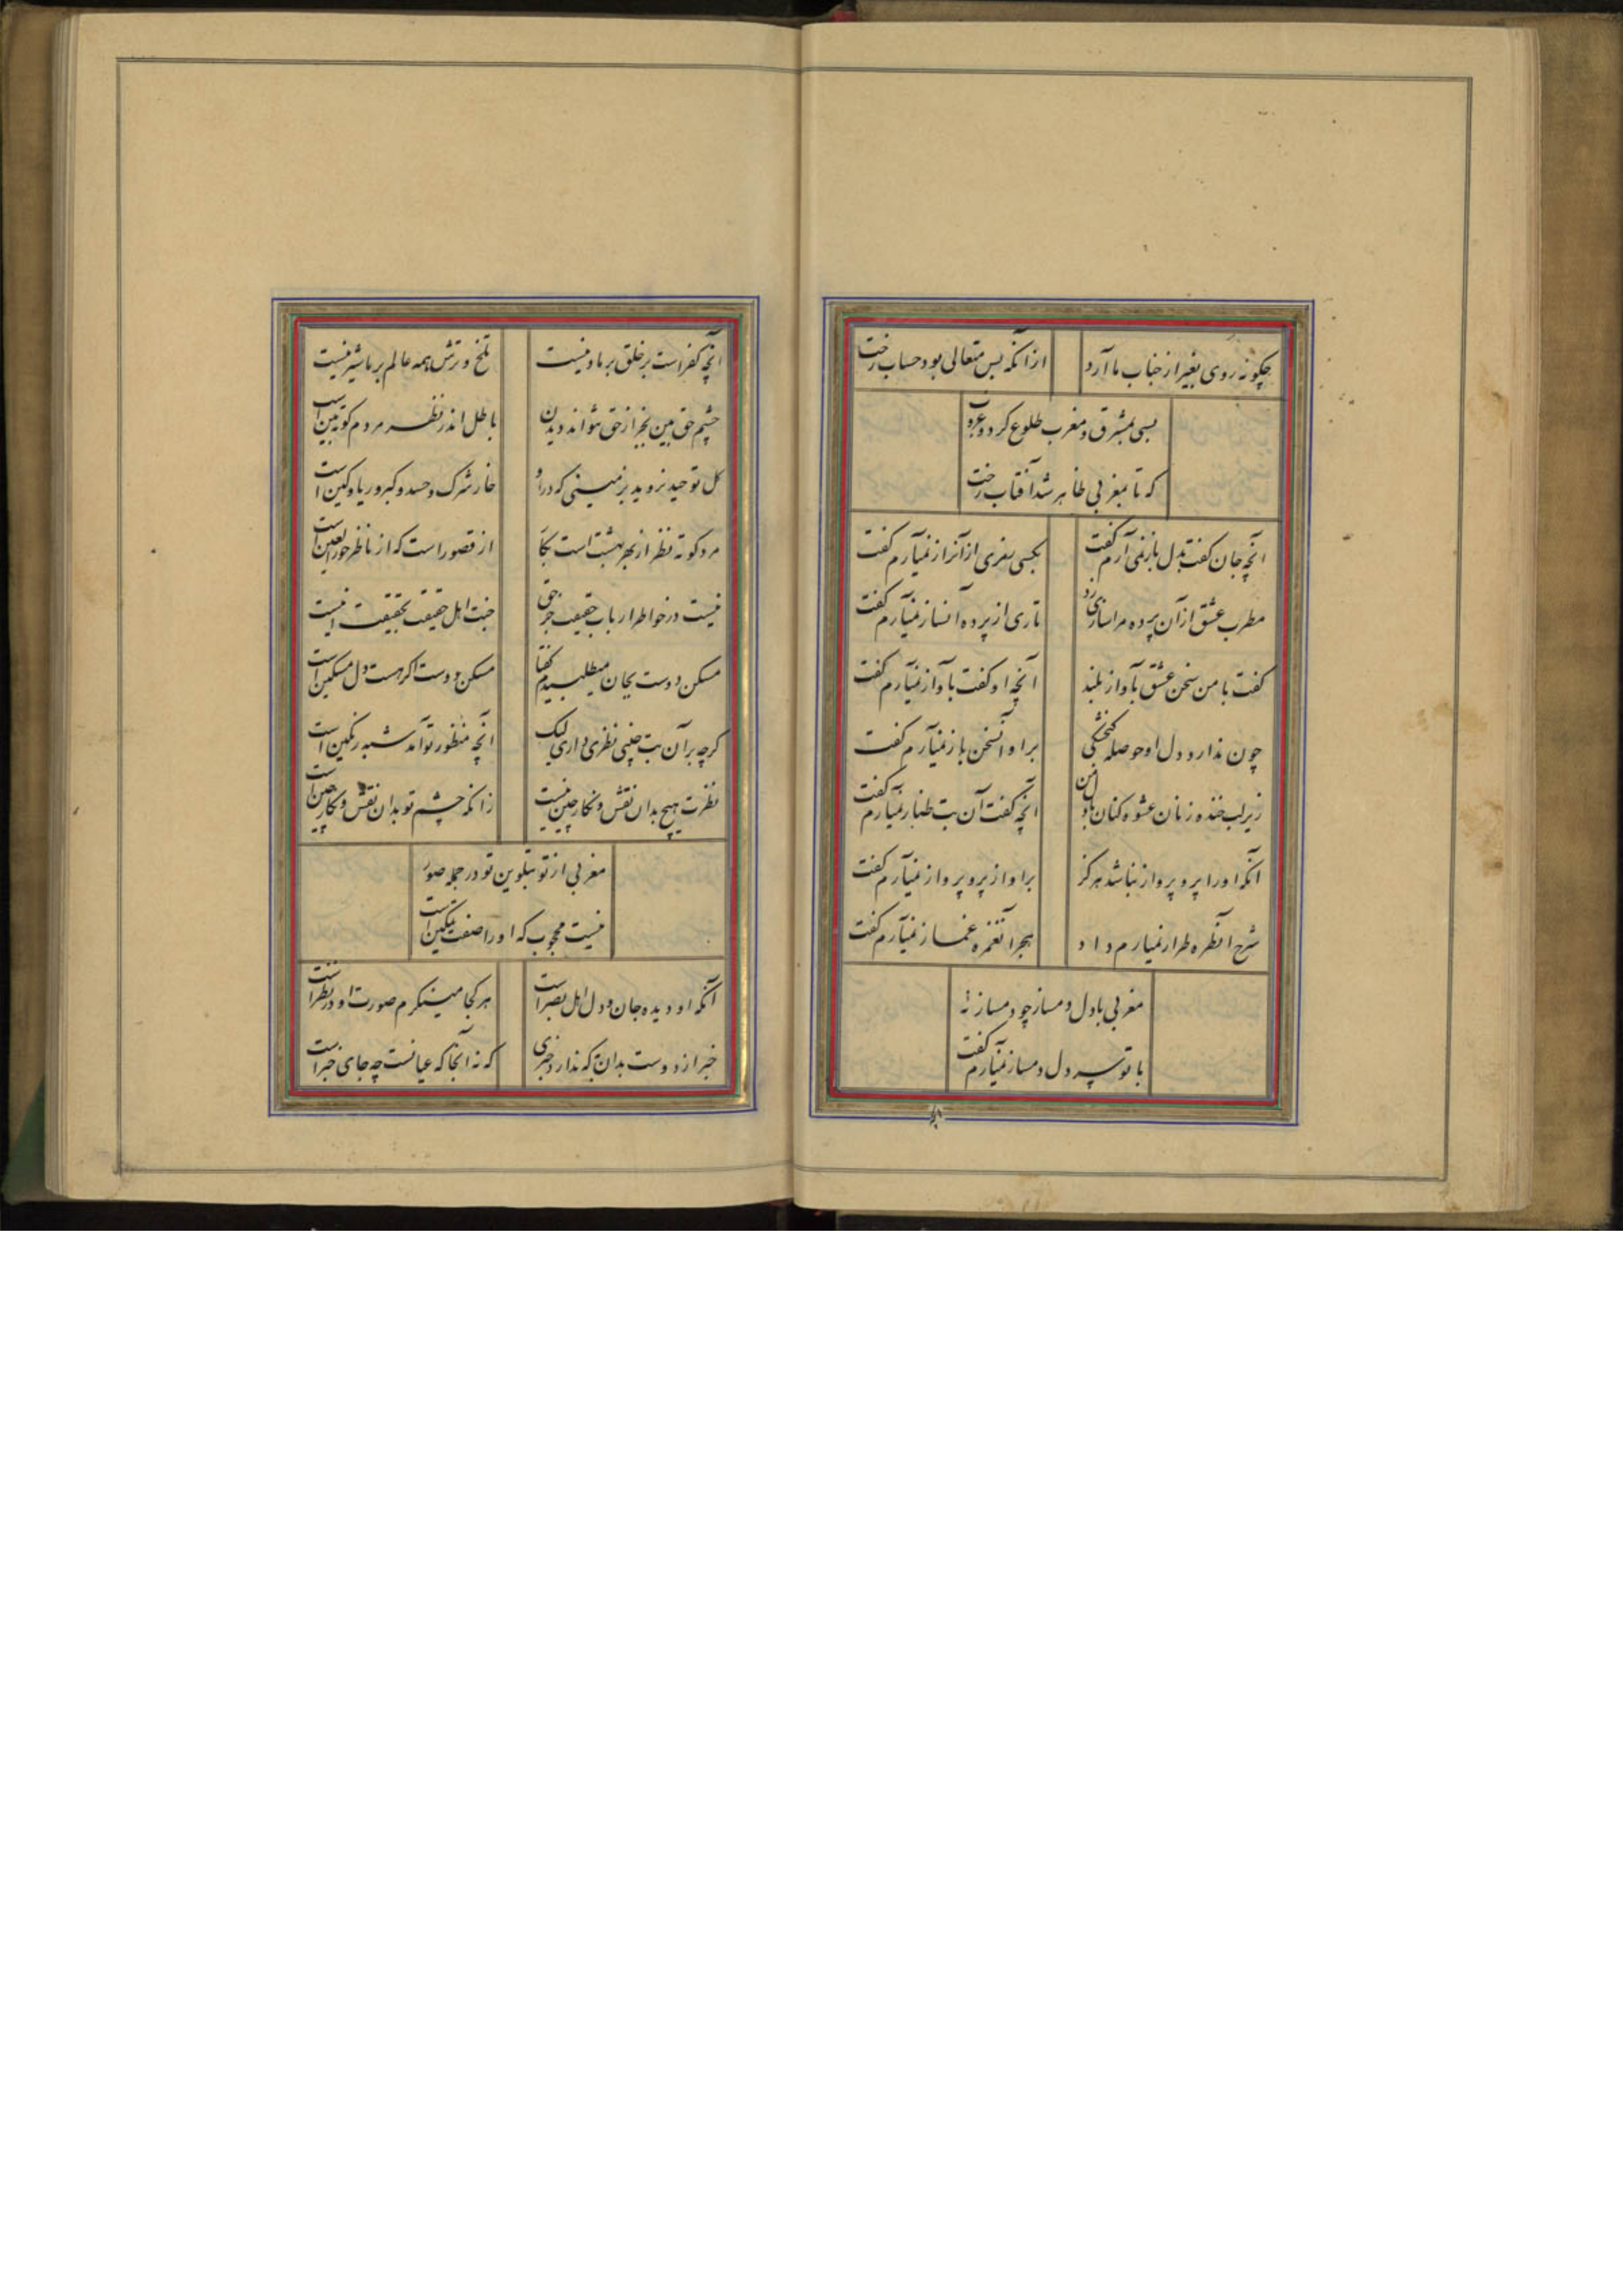 چکونه روی بغیر از جناب ما آرد
از آنکه بس متعالی بود حساب رخت
بسی بمشرق و مغرب طلوع کرد و غروب
که تا بمغربی ظاهر شد آفتاب رخت
آنچه جان کفت بدل باز نمی آرم کفت
بکسی رمزی از آنراز نمیآرم کفت
مطرب عشق از آن پرده مرا سازی زد
تاری از پرده آنساز نمیآرم کفت
کفت با من سخن عشق بآواز بلند
آنچه او کفت بآواز نمیآرم کفت
چون ندارد دل او حوصله کنجشکی
بر او آنسخن باز نمیآرم کفت
زیر لب خنده زنان عشوه کنان با دل من
آنچه کفت آن بت طناز نمیآرم کفت
آنکه او را پر و پرواز نباشد هرکز
بر او از پر و پرواز نمیآرم کفت
شرح آنطره طرار نمیارم داد
آنغمزه غماز نمیآرم کفت
مغربی با دل دمساز چو دمساز نه
با تو سر دل دمساز نمیآرم کفت
آنچه کفر است بر خلق بر ما دینست
تلخ و ترش همه عالم بر ما شیرینست
چشم حق بین بجز از حق نتواند دیدن
باطل اندر نظر مردم کوته بین است
کل توحید نروید بزمینی که در او
خار شرک و حسد و کبر و ریا و کین است
مرد کوته نظر از بهر بهشت است بکا
از قصور است که از ناظر حور العین است
نیست در خواطر ارباب حقیقت جز حق
جنت اهل حقیقت بحقیقت اینست
مسکن دوست بجان میطلبیدم کفتا
مسکن دوست اکر هست دل مسکین است
کرچه بر آن بت چینی نظری داری لیک
آنچه منظور تو آمد شبه رنکین است
نظرت هیچ بدان نقش و نکار چین نیست
زانکه چشم تو بدان نقش و نکار چین است
مغربی از تو بتلوین تو در جمله صور
نیست محجوب که او را صفت تمکین است
آنکه او دیده جان و دل اهل بصر است
هر کجا مینکرم صورت او در نظر است
خبر از دوست بدان بر که ندارد خبری
که نه آنجا که عیانست چه جای خبر است